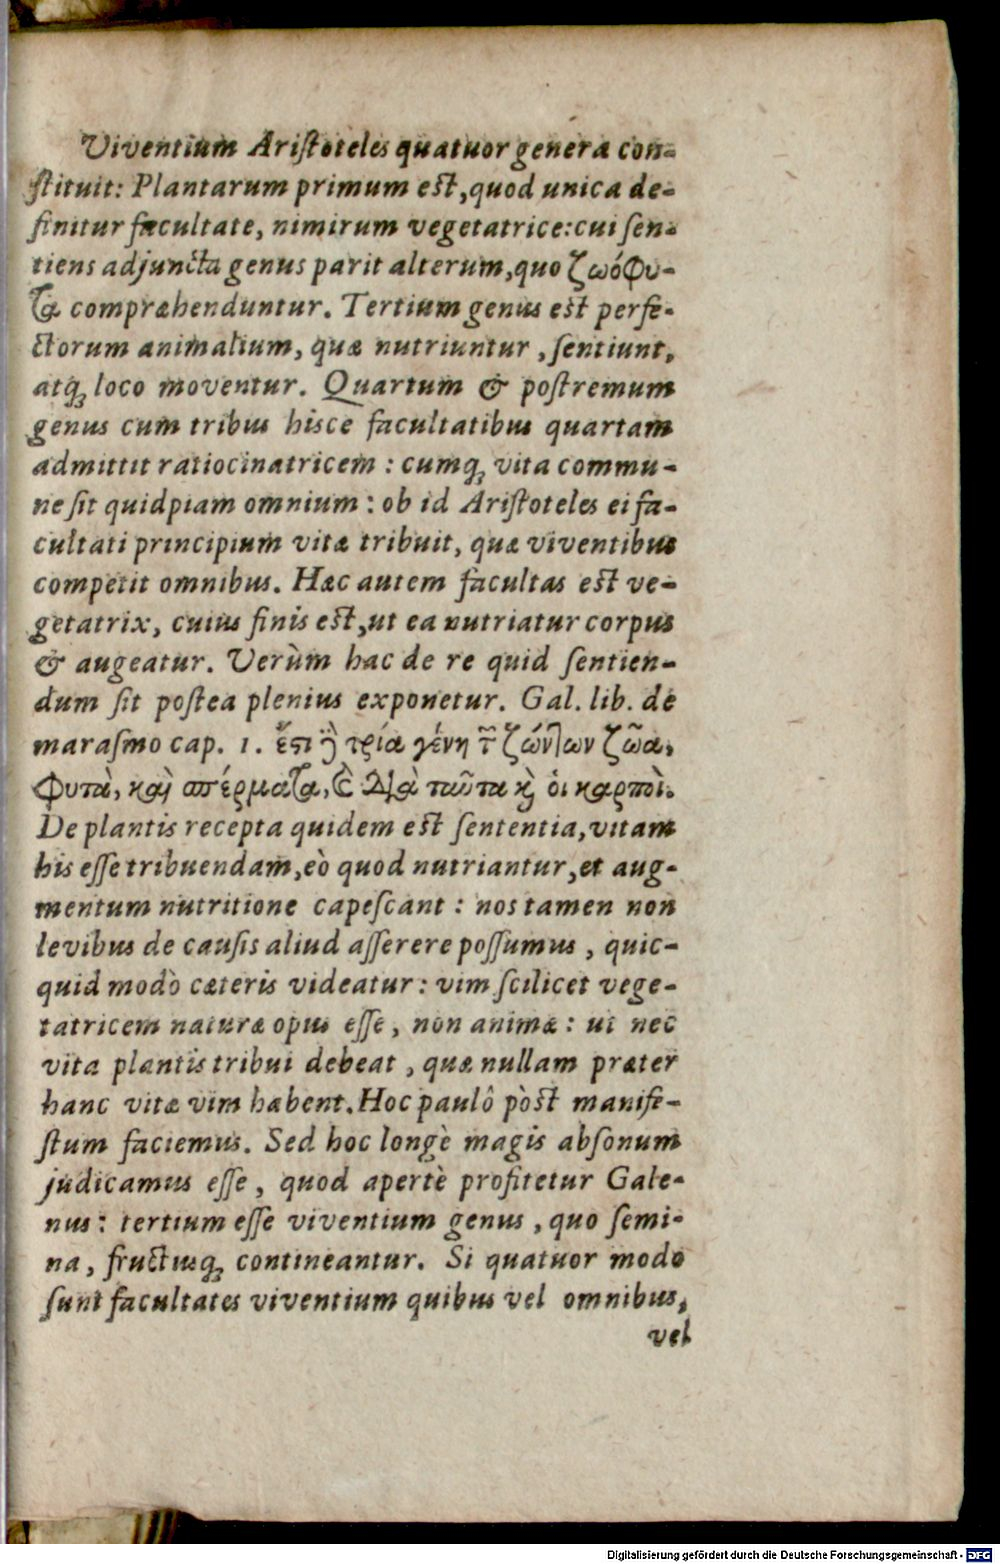 Viventium Aristoteles quatuor genera con-
stituit: Plantarum primum est, quod unica de-
finitur facultate, nimirum vegetatrice: cui sen-
tiens adjuncta genus parit alterum, quo ζωόφυ-
τα compræhenduntur. Tertium genus est perfe-
ctorum animalium, quæ nutriuntur, sentiunt,
atq; loco moventur. Quartum & postremum
genus cum tribus hisce facultatibus quartam
admittit ratiocinatricem: cumq; vita commu-
ne sit quidpiam omnium: ob id Aristoteles ei fa-
cultati principium vitæ tribuit, quæ viventibus
competit omnibus. Hæc autem facultas est ve-
getatrix, cuius finis est, ut ea nutriatur corpus
& augeatur. Verùm hac de re quid sentien-
dum sit postea plenius exponetur. Gal. lib. de
marasmo cap. 1. ἔστι ἢ τρία γένη τ῀ ζώντων ζῶα,
φυτὰ, καὶ σπέρματα, Ⓔ Διὰ ταῦτα κ̀ οἱ καρποὶ.
De plantis recepta quidem est sententia, vitam
his esse tribuendam, eò quod nutriantur, et aug-
mentum nutritione capescant: nos tamen non
levibus de causis aliud asserere possumus, quic-
quid modò cæteris videatur: vim scilicet vege-
tatricem naturæ opus esse, non animæ: ut nec
vita plantis tribui debeat, quæ nullam præter
hanc vitæ vim habent. Hoc paulô pòst manife-
stum faciemus. Sed hoc longè magis absonum
judicamus esse, quod apertè profitetur Gale-
nus: tertium esse viventium genus, quo semi-
na, fructusq; contineantur. Si quatuor modo
sunt facultates viventium quibus vel omnibus,
vel
Digitalisierung gefördert durch die Deutsche Forschungsgemeinschaft - DFG